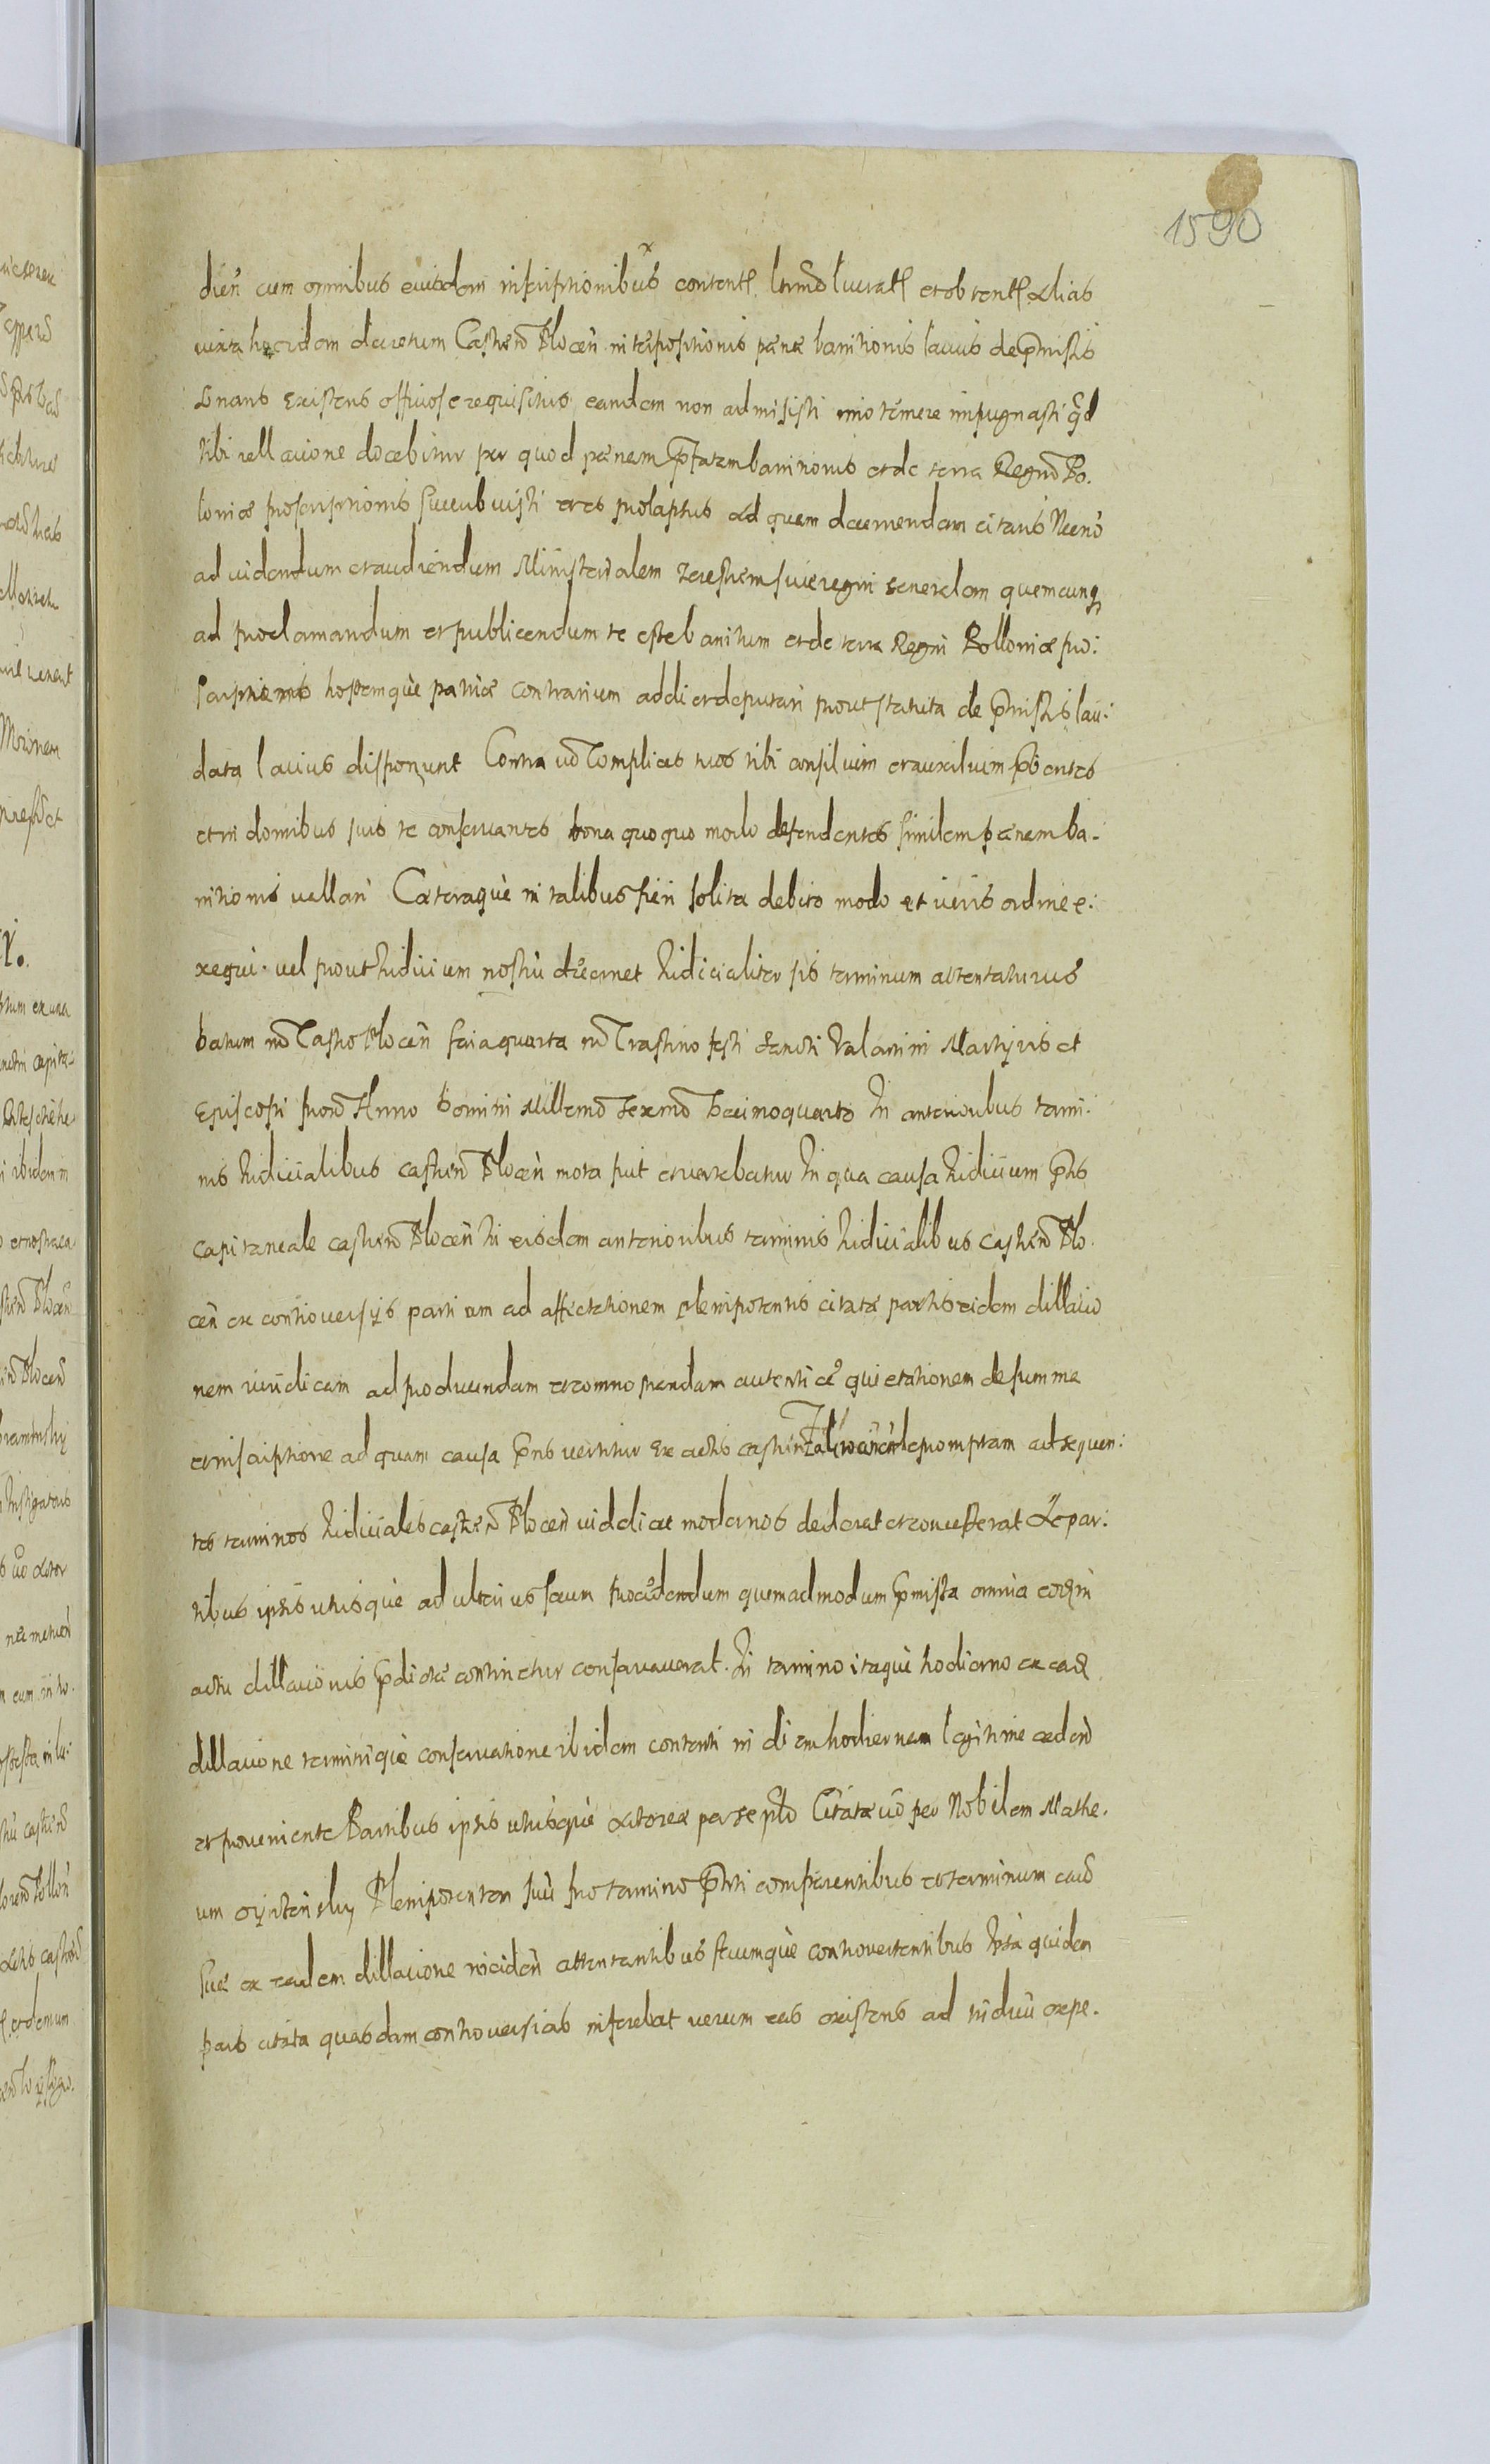 1590
dien̄ cum omnibus eiusdem inscriptionibus content. lrmo lucrat. et obtent. alias
iuxta hocidem decretum Castren̄ Plocen̄ interpositionis pænæ banitionis latius de p̄missis
sonans existens officiose requisitus eandem non admisisti imo temere impugnasti qd
tibi rellatione docebitur per quod pænam p̄fatam banitionis et de terra Regno Po.
loniæ proscriptionis succubuisti et es prolapsus Ad quem decernendam citaris Necno
ad videndum et audiendum Ministerialem terrestrem sive regni generalem quemcunq
ad proclamandum et publicandum te esse banitum et de terra Regni Polloniæ pro:
scriptionis hostemque patriæ contrarium addi et deputari prout statuta de p̄missis lau:
data latius disponunt Contra vo Complices tuos tibi consilium et auxilium p̄bentes
et in domibus suis te conservantes bona quoquo modo defendentes similem pænam ba-
nitionis vellari Cæteraque in talibus fieri solita debito modo et iuris ordine e:
xequi vel prout Iudicium nostrū decernet Iudicialiter sis terminum attentaturus
Datum in Castro Plocen̄ feria quarta in Crastino festi Sancti Valantini Martyris et
Episcopi pro Anno Domini Millemo Sexmo Decimoquarto In anterioribus termi:
nis Iudicialibus castren̄ Plocen̄ mota fuit et vertebatur In qua causa Iudicium p̄ns
capitaneale castren̄ Plocen̄ In eisdem anterioribus terminis Iudicialibus castren̄ Plo.
cen̄ ex controversijs partium ad affectationem plenipotentis citatæ partis eidem dillatio
nem iuridicam ad producendam et comnostrandam autenticæ quietationem de summa
et inscriptione ad quam causa p̄ns vertitur Ex actis castren̄ depromptam ad sequen:
tes terminos Iudiciales castren̄ Plocen̄ videlicet modernos dederat et concesserat Ac par:
tibus ipsis utrisque ad ulterius secum procedendum quemadmodum p̄missa omnia eodem
actu dillationis p̄dictæ continetur conservaverat. In termino itaque hodierno ex eadē
dillatione terminique conservatione ibidem contenti in diem hodiernam legitime caden̄
et proveniente Partibus ipsis utrisque Actorea per se p̄to Citata vo per Nobilem Mathe.
um Plenipotentem suū pro termino p̄nti comparentibus et terminum eund
suæ ex eadem dillatione inciden̄ attentantibus secumque controvertentibus Ista quidem
pars citata quasdam controversias inferebat verum eas existens ad Iudiciū expe.